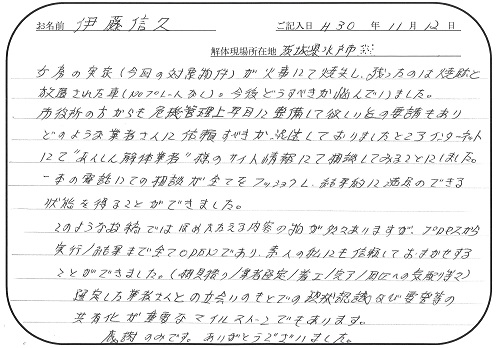 お名前 伊藤信久 ご記入日 H30 年 11 月 12 日
解体現場所在地 茨城県水戸市※※
女房の実家(今回の対象物件)が火事にて焼失し、残ったのは焼跡と
放置された車(Noプレートなし)。今後どうすべきか悩んでいました。
市役所の方からも危機管理上早目に整備して欲しい旨の要請もあり
どのような業者さんに依頼すべきか、混迷しておりましたところインターネット
にて"あんしん解体業者"様のサイト情報にて相談してみることにしました。
一本の電話にての相談が全てをプッシュし、結果的に満足のできる
状態を得ることができました。
このような投稿ではほめたたえる内容の物が多々ありますが、プロセスから
実行/結果まで全てOPENであり、素人の私にも信頼しておまかせする
ことができました。(相見積り/業者選定/着工/完了/近区への気取りまで)
選定した業者さんとの立会いのもとでの現状認識及び要望等の
共有化が重要なマイルストーンでもあります。
感謝のみです。ありがとうございました。